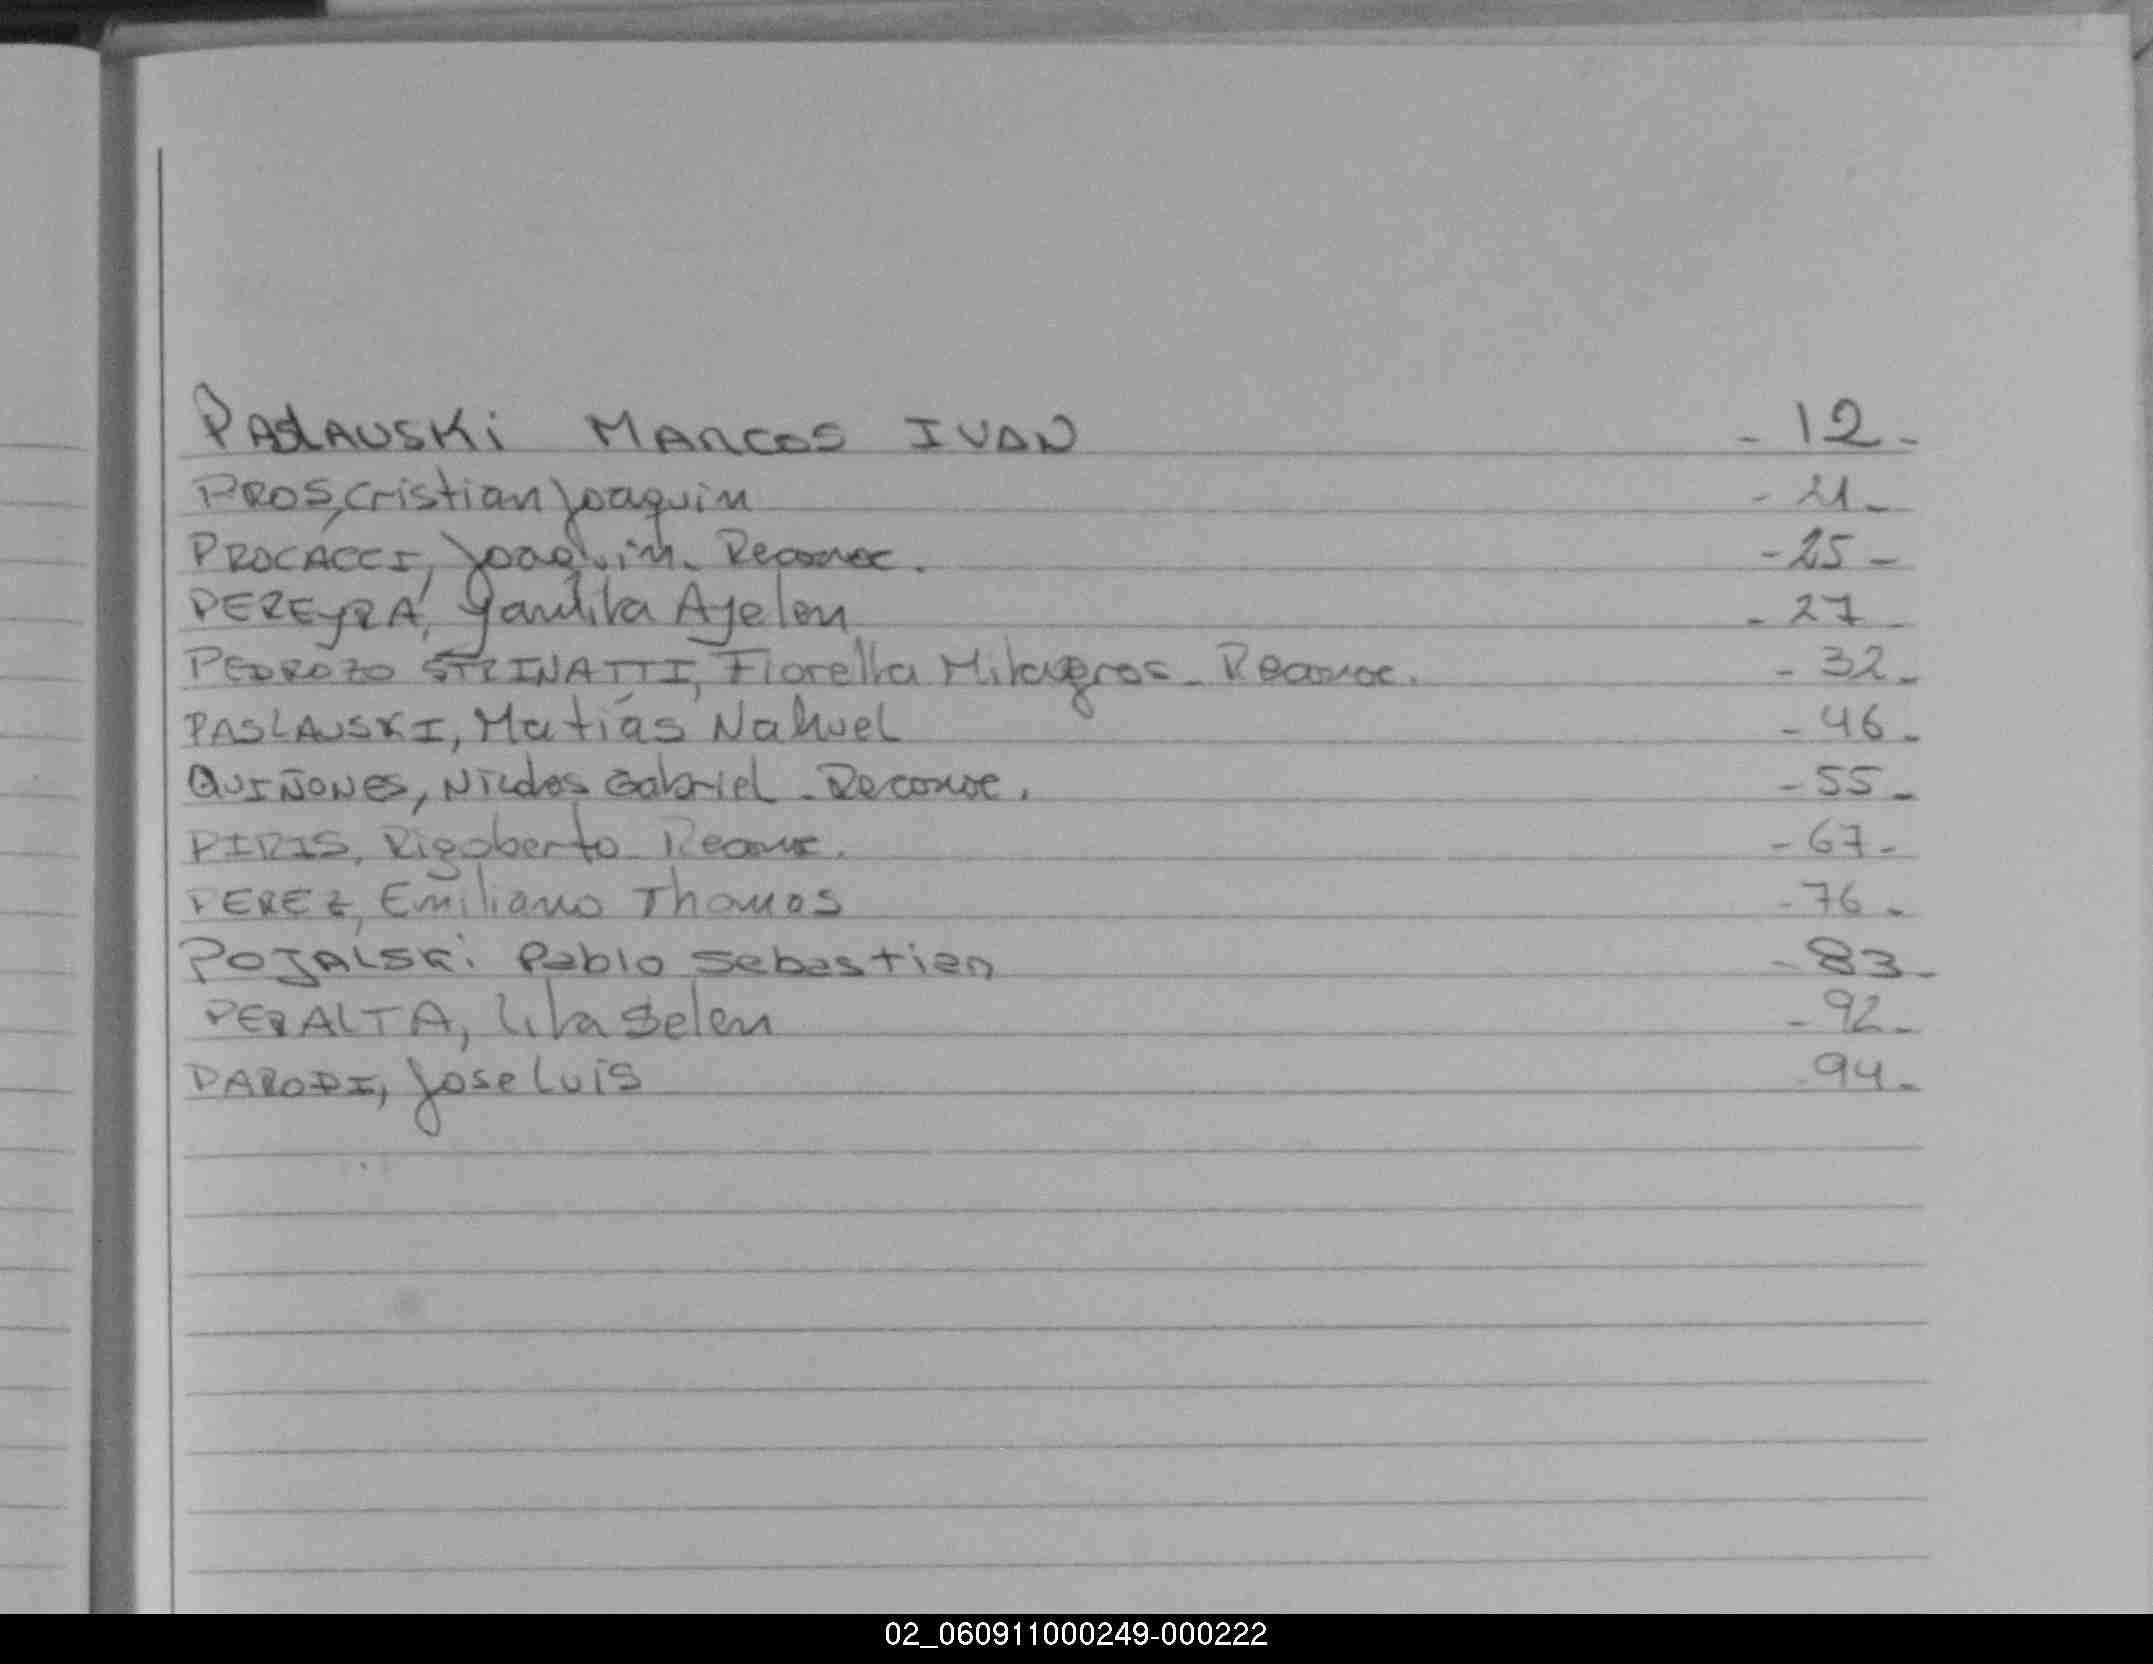 PASLAUSKi MARCOS IVAN - 12 -
PROS, Cristian Joaquin - 21 -
PROCACCI, Joaquin - Reconoc. - 25 -
PEREYRA, Ayelen - 27 -
PEDROZO STRINATTI, Fiorella Milagros - Reconoc. - 32 -
PASLAUSKI, Matías Nahuel - 46 -
QUIÑONES, Nicolas Gabriel - Reconoc. - 55 -
PIRIS, Rigoberto - Reconoc. - 67 -
PEREZ, Emiliano Thomas - 76 -
POJALSKi Pablo Sebastian - 83 -
PERALTA, Selen - 92 -
PARODI, Jose Luis - 94 -
02_060911000249-000222